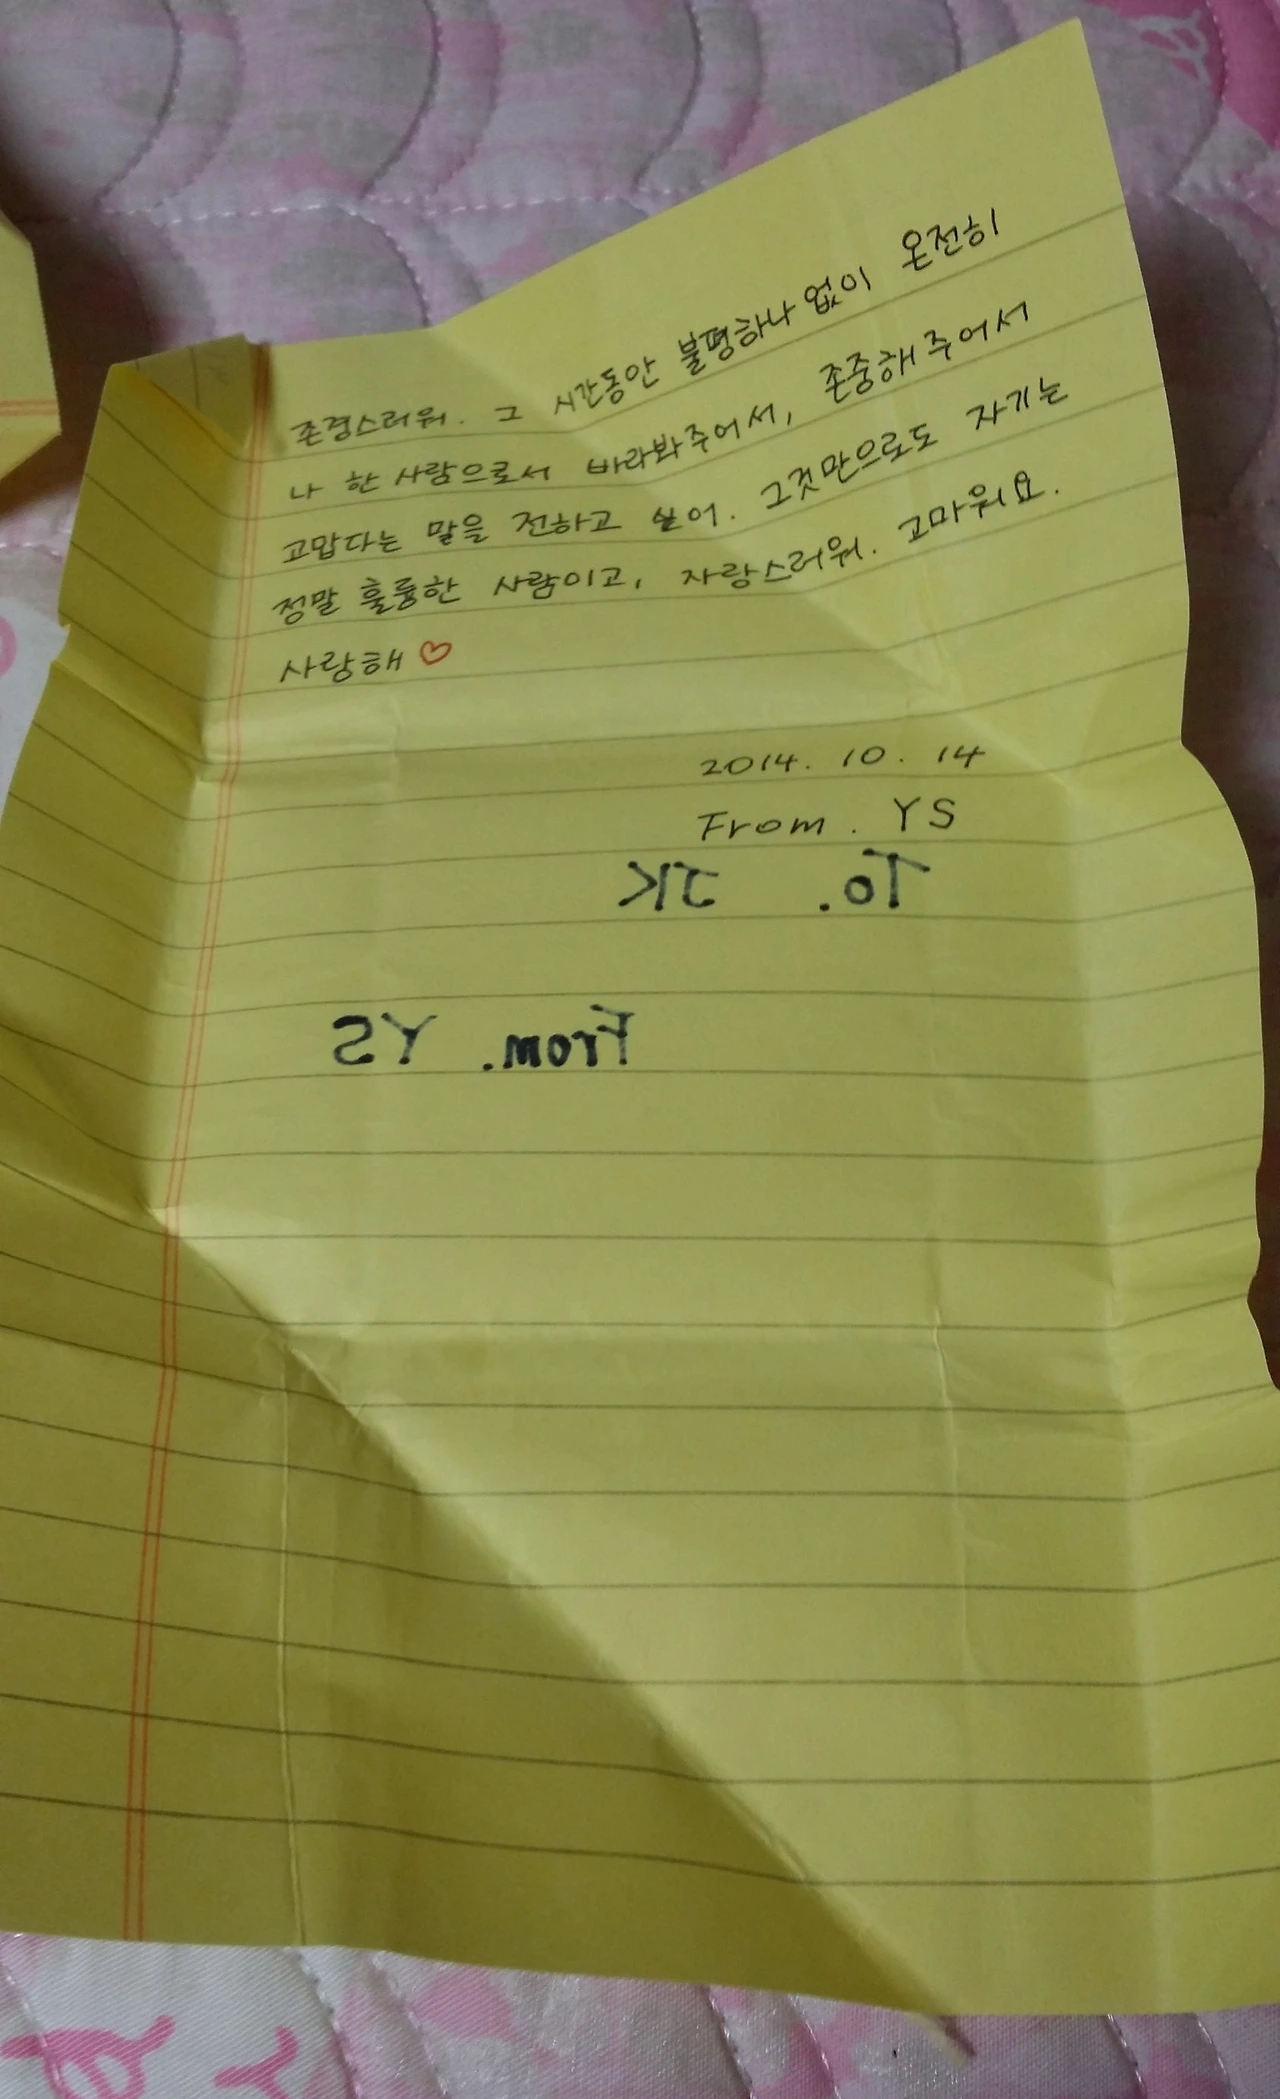 존경스러워. 그 시간동안 불평하나 없이 온전히
나 한 사람으로서 바라봐주어서, 존중해주어서
고맙다는 말을 전하고 싶어. 그것만으로도 자기는
정말 훌륭한 사람이고, 자랑스러워. 고마워요.
사랑해 ♡
2014. 10. 14
From. YS
To. JK
From. YS